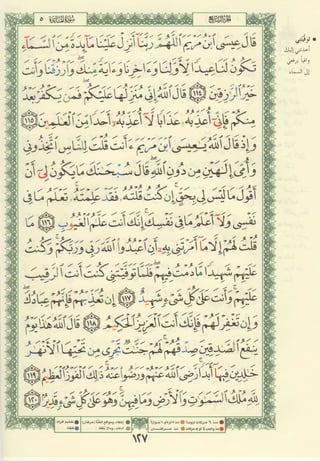 الجزء السابع
سورة المائدة ٥
قَالَ عِيسَى ابْنُ مَرْيَمَ اللَّهُمَّ رَبَّنَا أَنزِلْ عَلَيْنَا مَائِدَةً مِّنَ السَّمَاءِ
تَكُونُ لَنَا عِيدًا لِّأَوَّلِنَا وَءَاخِرِنَا وَءَايَةً مِّنكَ وَارْزُقْنَا وَأَنتَ
خَيْرُ الرَّازِقِينَ ١١٤ قَالَ اللَّهُ إِنِّي مُنَزِّلُهَا عَلَيْكُمْ فَمَن يَكْفُرْ بَعْدُ
مِنكُمْ فَإِنِّي أُعَذِّبُهُ عَذَابًا لَّا أُعَذِّبُهُ أَحَدًا مِّنَ الْعَالَمِينَ ١١٥
وَإِذْ قَالَ اللَّهُ يَاعِيسَى ابْنَ مَرْيَمَ ءَأَنتَ قُلْتَ لِلنَّاسِ اتَّخِذُونِي
وَأُمِّيَ إِلَاهَيْنِ مِن دُونِ اللَّهِ قَالَ سُبْحَانَكَ مَا يَكُونُ لِي أَنْ
أَقُولَ مَا لَيْسَ لِي بِحَقٍّ إِن كُنتُ قُلْتُهُ فَقَدْ عَلِمْتَهُ تَعْلَمُ مَا فِي
نَفْسِي وَلَا أَعْلَمُ مَا فِي نَفْسِكَ إِنَّكَ أَنتَ عَلَّامُ الْغُيُوبِ ١١٦ مَا
قُلْتُ لَهُمْ إِلَّا مَا أَمَرْتَنِي بِهِ أَنِ اعْبُدُوا اللَّهَ رَبِّي وَرَبَّكُمْ وَكُنتُ
عَلَيْهِمْ شَهِيدًا مَّا دُمْتُ فِيهِمْ فَلَمَّا تَوَفَّيْتَنِي كُنتَ أَنتَ الرَّقِيبَ
عَلَيْهِمْ وَأَنتَ عَلَى كُلِّ شَيْءٍ شَهِيدٌ ١١٧ إِن تُعَذِّبْهُمْ فَإِنَّهُمْ عِبَادُكَ
وَإِن تَغْفِرْ لَهُمْ فَإِنَّكَ أَنتَ الْعَزِيزُ الْحَكِيمُ ١١٨ قَالَ اللَّهُ هَذَا يَوْمُ
يَنفَعُ الصَّادِقِينَ صِدْقُهُمْ لَهُمْ جَنَّاتٌ تَجْرِي مِن تَحْتِهَا الْأَنْهَارُ
خَالِدِينَ فِيهَا أَبَدًا رَّضِيَ اللَّهُ عَنْهُمْ وَرَضُوا عَنْهُ ذَلِكَ الْفَوْزُ الْعَظِيمُ ١١٩
لِلَّهِ مُلْكُ السَّمَاوَاتِ وَالْأَرْضِ وَمَا فِيهِنَّ وَهُوَ عَلَى كُلِّ شَيْءٍ قَدِيرٌ ١٢٠
١٢٧
توفيتني
أخذتني إليك
وافياً برفعي
إلى السماء